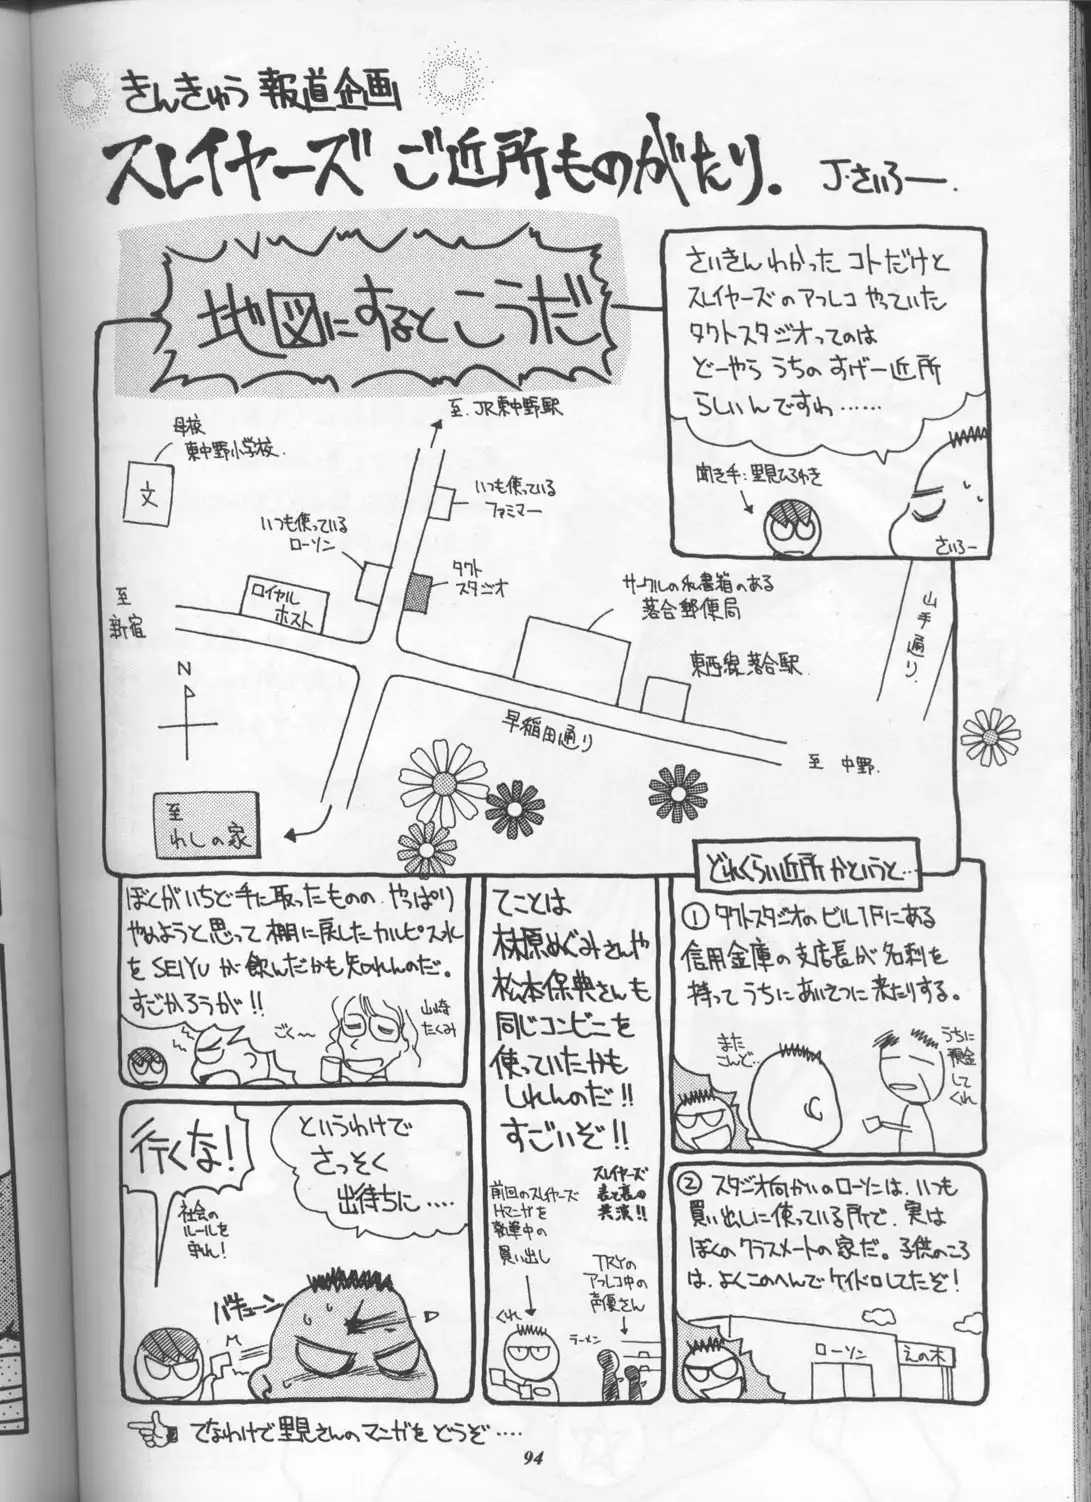 きんきゅう 報道企画
スレイヤーズ ご近所ものがたり.
J・さいろー.
さいきんわかったコトだけど
スレイヤーズのアフレコやっていた
タクトスタジオってのは
どーやらうちのすげー近所
らしいんですわ……
聞き手:里見ひろゆき
さいろー
地図にするとこうだ
至.JR東中野駅
母校
東中野小学校.
文
いつも使っている
ファミマー
いつも使っている
ローソン
タクト
スタジオ
ロイヤル
ホスト
至
新宿
サークルの私書箱のある
落合郵便局
東西線落合駅
山手通り.
早稲田通り
至 中野.
N
至
わしの家
どれくらい近所かというと…
① タクトスタジオのビル1Fにある
信用金庫の支店長が名刺を
持ってうちにあいさつに来たりする。
また
こんど…
うちに
預金
してくれ
② スタジオ向かいのローソンは、いつも
買い出しに使っている所で、実は
ぼくのクラスメートの家だ。子供のころ
は、よくこのへんでケイドロしてたぞ!
ローソン
えの木
てことは
林原めぐみさんや
松本保典さんも
同じコンビニを
使っていたかも
しれんのだ!!
すごいぞ!!
スレイヤーズ
表と裏の
共演!!
前回のスレイヤーズ
Hマンガを
執筆中の
買い出し
TRYの
アフレコ中の
声優さん
くれ
ラーメン
ぼくがいちど手に取ったものの、やっぱり
やめようと思って棚に戻したカルピス水
をSEIYUが飲んだかも知れんのだ。
すごかろうが!!
ごく〜
山崎
たくみ
というわけで
さっそく
出待ちに……
行くな!
社会の
ルールを
守れ!
バキューン
てなわけで里見さんのマンガをどうぞ‥‥
94